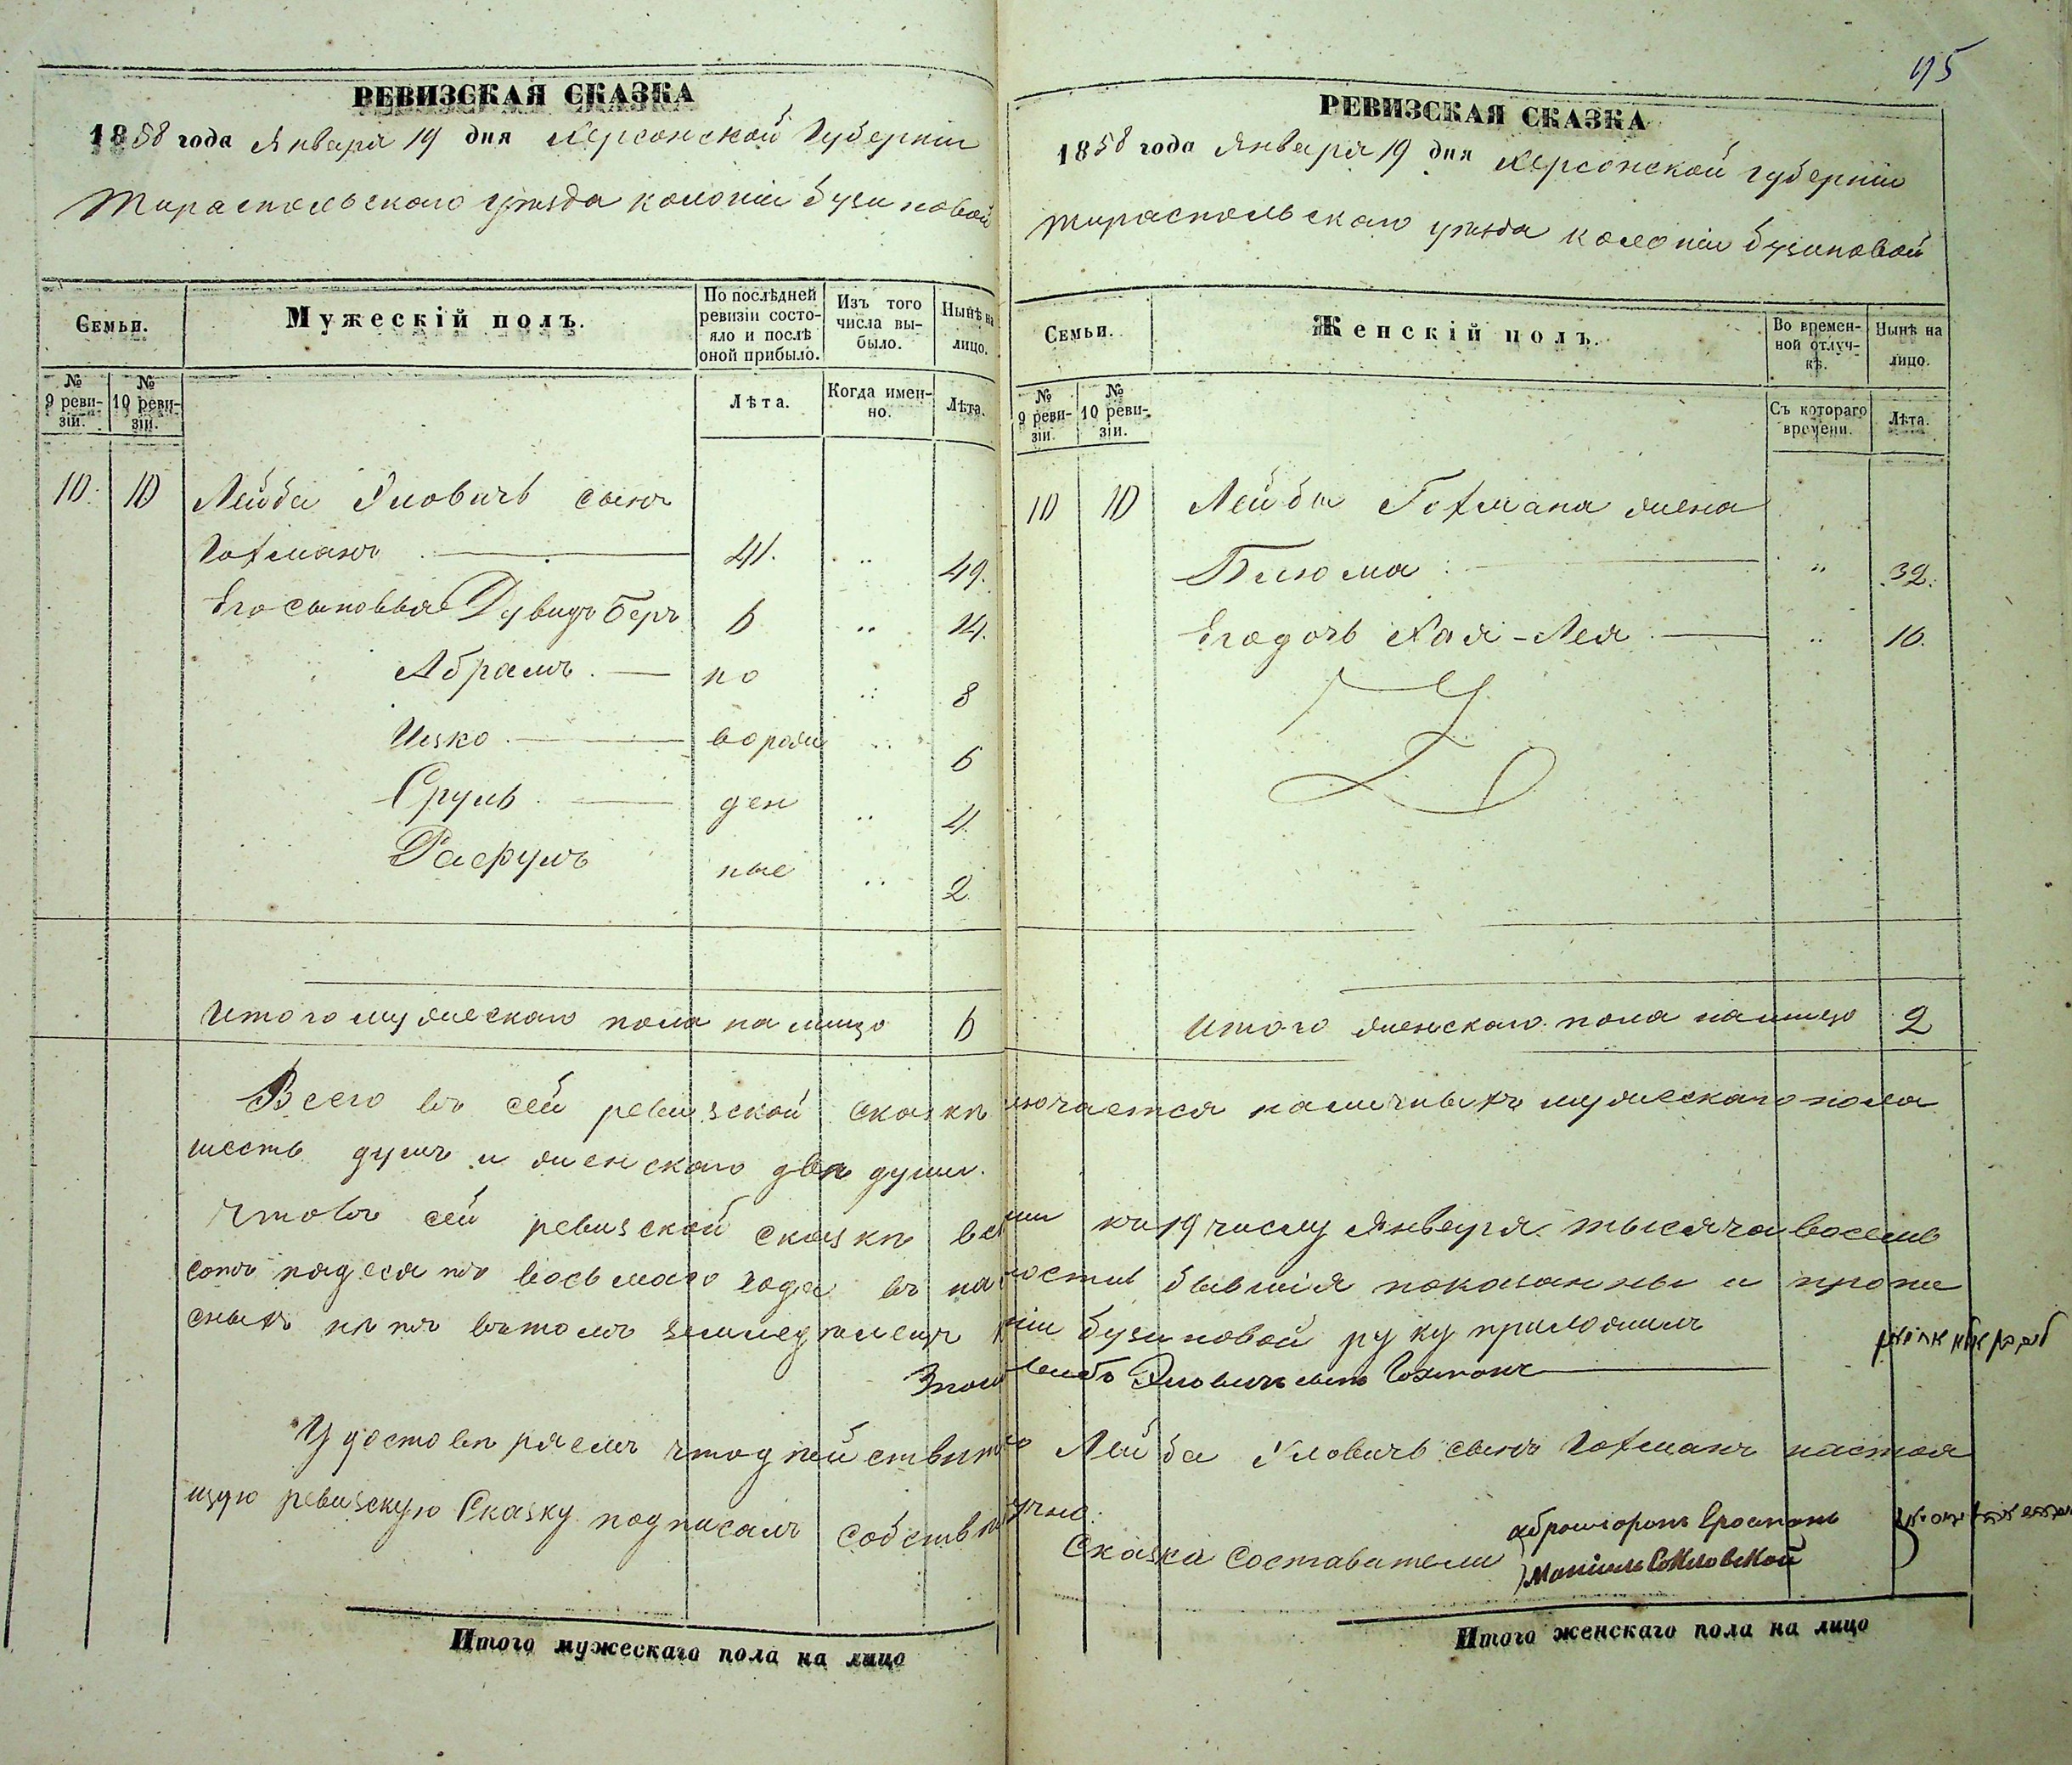 195
РЕВИЗСКАЯ СКАЗКА
1858 года Января 19 дня Херсонской Губерніи
Тираспольскаго уѣзда колоніи Бузиновой
Семьи.
Мужескій полъ.
По послѣдней ревизіи состояло и послѣ оной прибыло.
Изъ того числа выбыло.
Нынѣ на лицо.
№ 9 ревизіи.
№ 10 ревизіи.
Лѣта.
Когда именно.
Лѣта.
10. 10 Лейба Іповичъ сынъ
Гохманъ 41. 49.
Его сыновья Дувидъ Беръ 6 14.
Абрамъ. по 8
Ицко ворож 6
Сруль ден 4.
Расфулъ ные 2
Итого мужескаго пола на лицо 6
РЕВИЗСКАЯ СКАЗКА
1858 года Января 19 дня Херсонской губерніи
Тираспольскаго уѣзда колоніи Бузиновой
Семьи.
Женскій полъ.
Во временной отлучкѣ.
Нынѣ на лицо.
№ 9 ревизіи
№ 10 ревизіи.
Съ котораго времени.
Лѣта.
10 10 Лейбы Гохмана жена
Блюма 32.
Его дочь Хая-Лея 10.
Итого женскаго пола на лицо 2
Всего въ сей ревизской сказкѣ лючается наличныхъ мужескаго пола
шесть душъ и женскаго двѣ души.
Что въ сей ревизской сказкѣ всѣ къ 19 числу Января тысяча восемь
сотъ падесятъ восьмаго года въ на бывшія показанны и пропи
сныхъ нѣтъ вътомъ земледѣлецъ Бузиновой руку приложилъ
Гохманъ
Удостовѣряемъ что дѣйствит Лейба сынъ Гохманъ настоя
щую ревизскую Сказку подписалъ собственно
учно.
Сказка Составители
Соколовской
Итого мужескаго пола на лицо
Итого женскаго пола на лицо